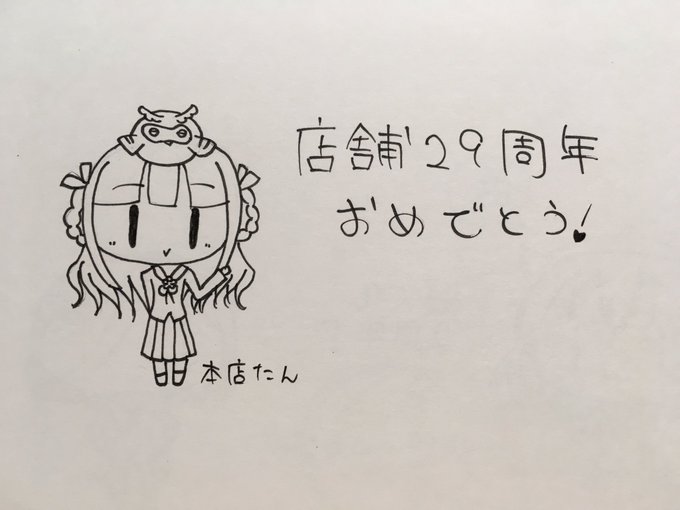 店舗29周年
おめでとう!
本店たん